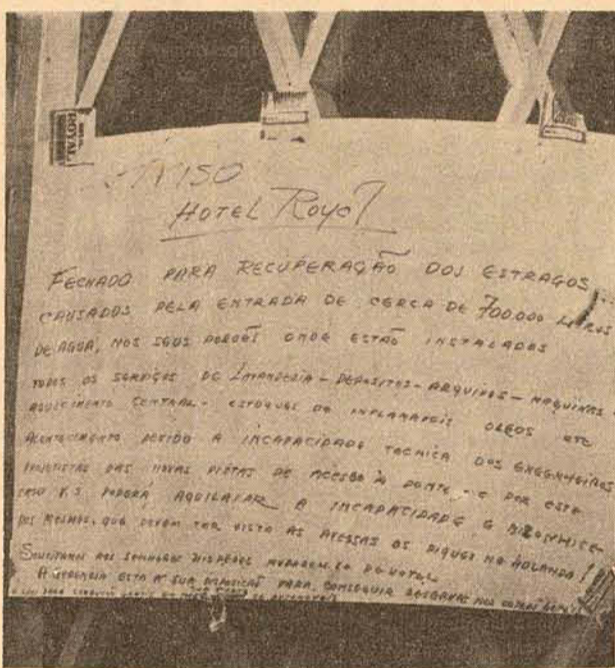 ROYAL
AVISO
HOTEL Royal
FECHADO PARA RECUPERAÇÃO DOS ESTRAGOS
CAUSADOS PELA ENTRADA DE CERCA DE 700.000 LITROS
DE AGUA, NOS SEUS PORÕES ONDE ESTÃO INSTALADOS
TODOS OS SERVIÇOS DE LAVANDERIA - DEPOSITOS - ARQUIVOS - MAQUINAS
AQUECIMENTO CENTRAL - ESTOQUES DE INFLAMAVEIS OLEOS ETC
ACONTECIMENTO DEVIDO A INCAPACIDADE TECNICA DOS ENGENHEIROS
PROJETISTAS DAS NOVAS PISTAS DE ACESSO À PONTE - E POR ESTE
CASO V.S PODERÁ AQUILATAR A INCAPACIDADE E
DOS MESMOS, QUE DEVEM TER VISTO AS AVESSAS OS DIQUES NA HOLANDA!
SOLICITAMOS AOS SENHORES HOSPEDES MUDAREM-SE DE HOTEL
A GERENCIA ESTA A SUA DISPOSIÇÃO PARA CONSEGUIR